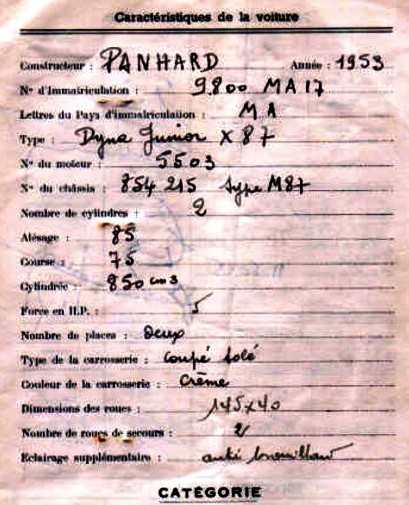 Caractéristiques de la voiture
Constructeur : PANHARD Année : 1953
N° d'Immatriculation : 9800 MA 17
Lettres du Pays d'immatriculation : MA
Type : Dyna Junior X 87
N° du moteur : 5503
N° du châssis : 854 215 type M87
Nombre de cylindres : 2
Alésage : 85
Course : 75
Cylindrée : 850 cm3
Force en H.P. : 5
Nombre de places : deux
Type de la carrosserie : coupé tolé
Couleur de la carrosserie : Crème
Dimensions des roues : 145x40
Nombre de roues de secours : 2
Eclairage supplémentaire : anti brouillard
CATÉGORIE